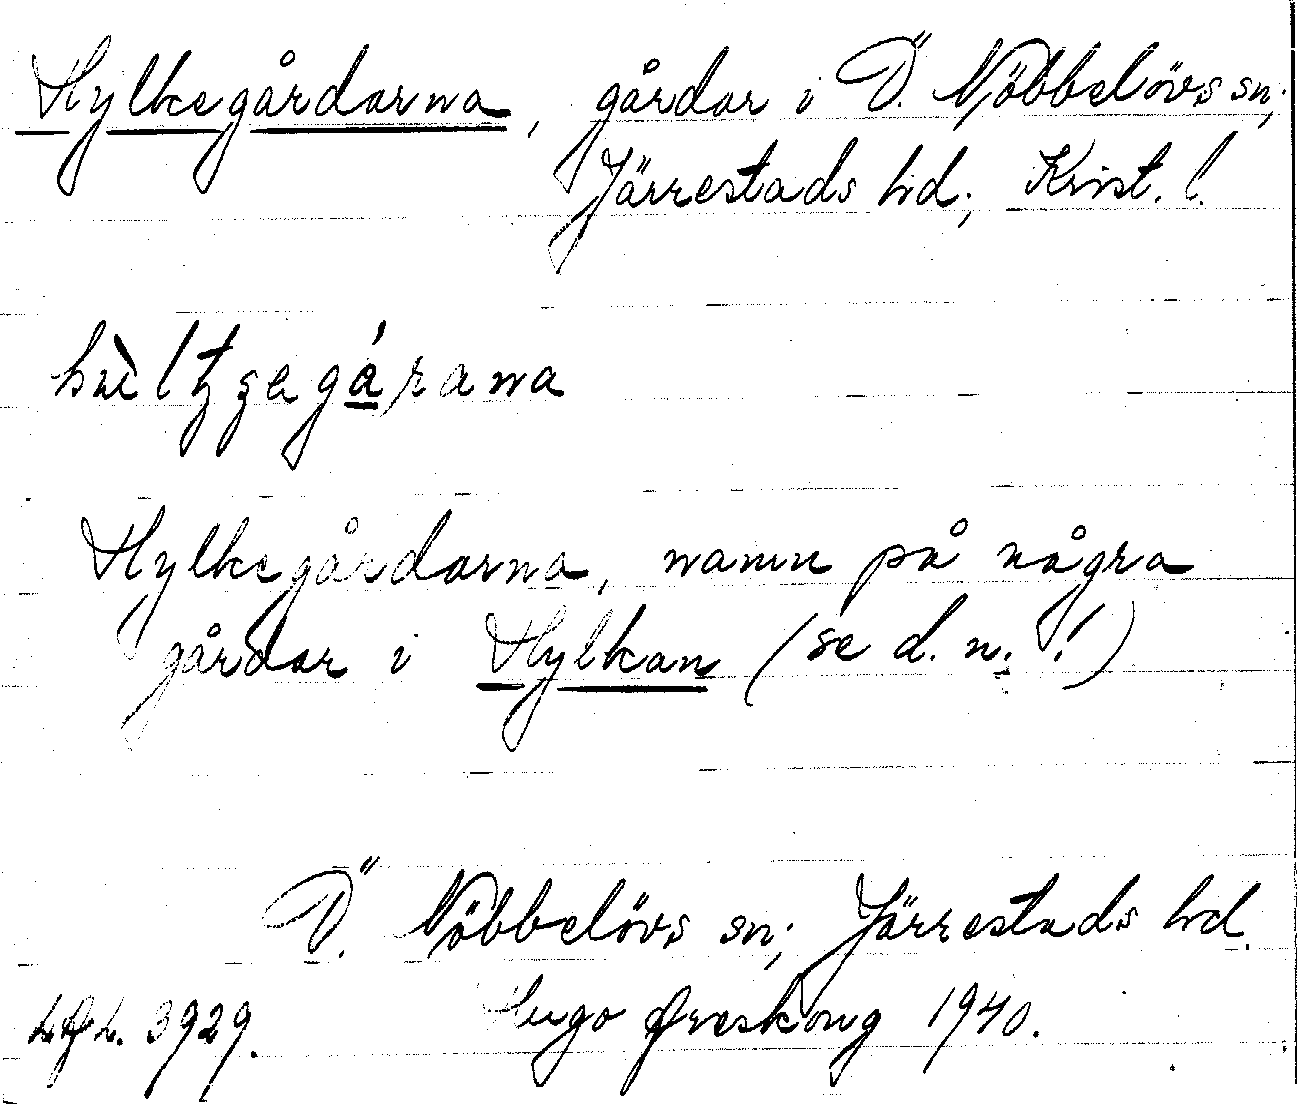 Hylkegårdarna, gårdar i Ö. Nöbbelövs sn;
Järrestads hd; Krist. l.
Hylkegårdarna, namn på några
gårdar i Hylkan (se d. n.!)
Ö. Nöbbelövs sn; Järrestads hd.
3929. Hugo Areskoug 1940.